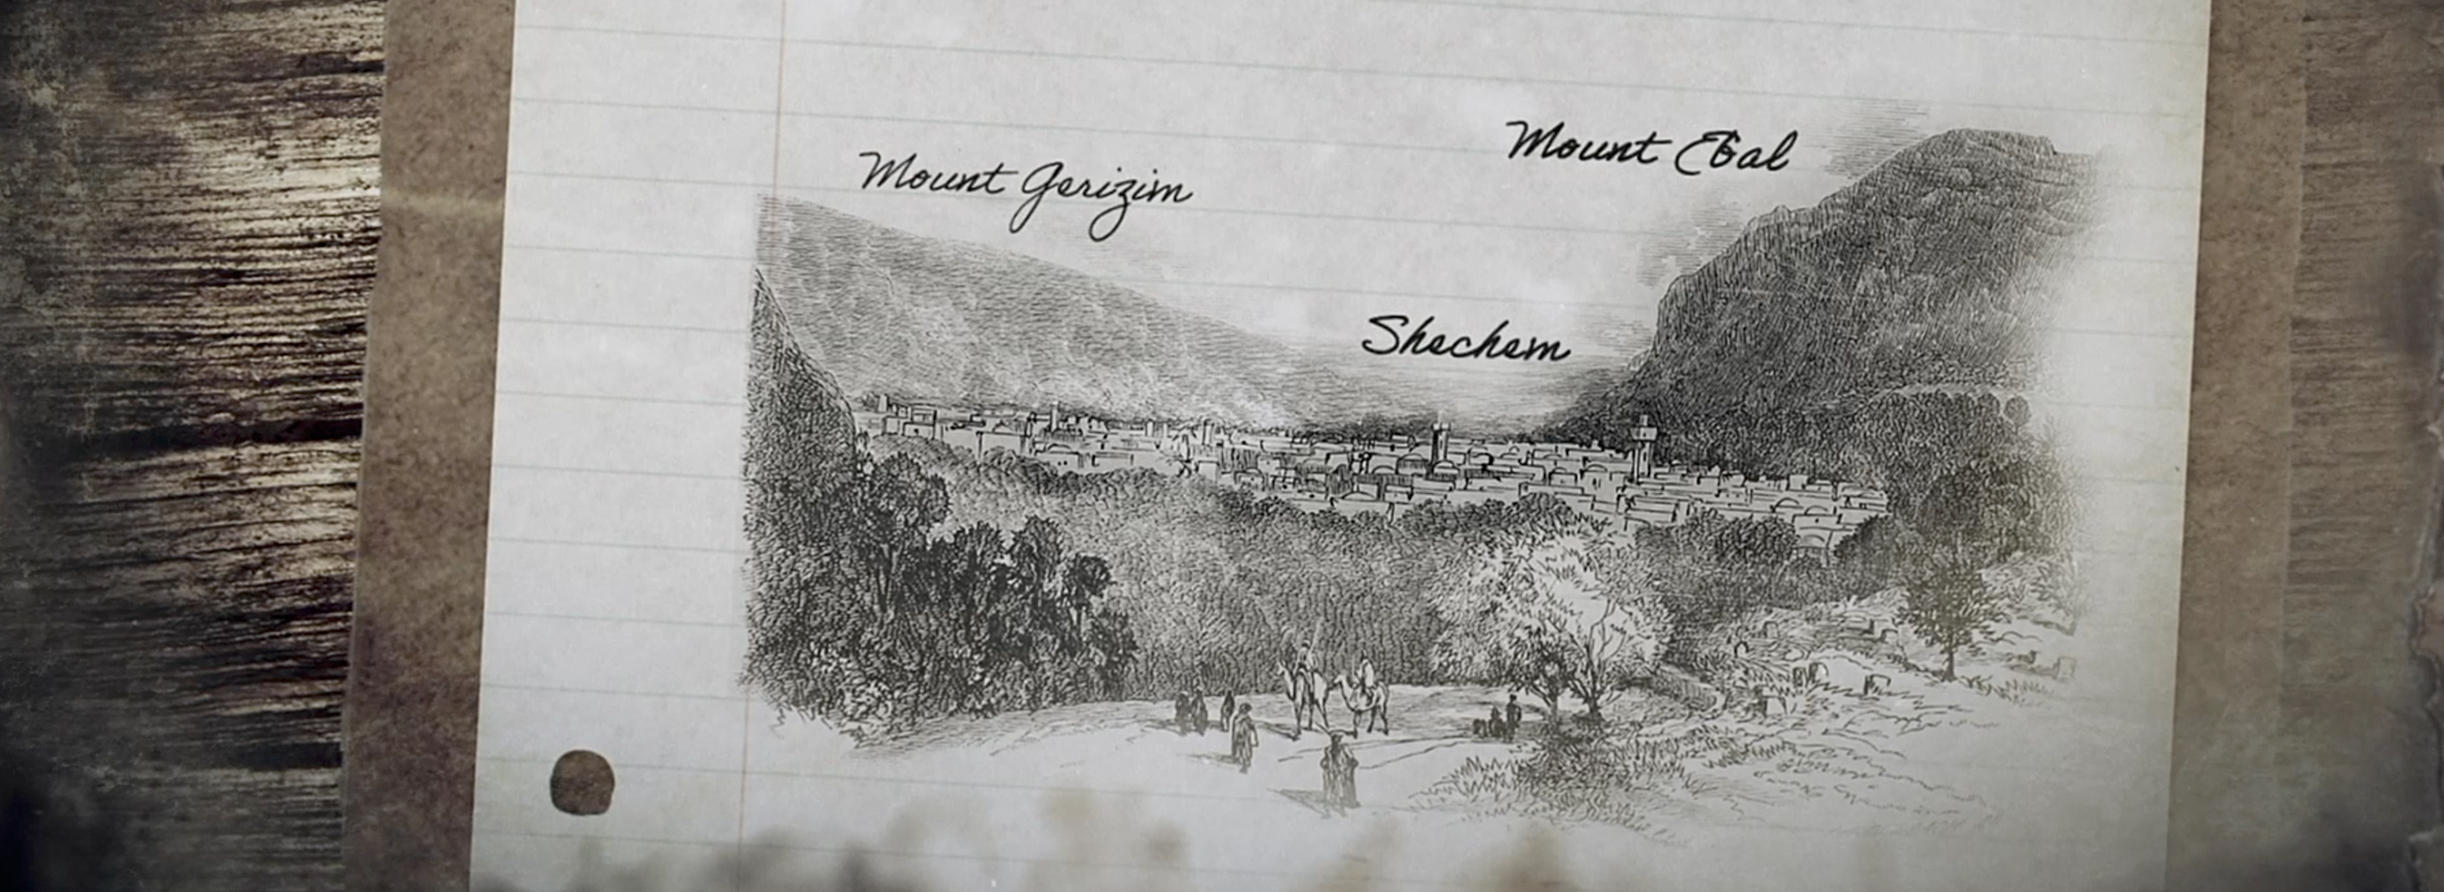 Mount Ebal
Mount Gerizim
Shechem